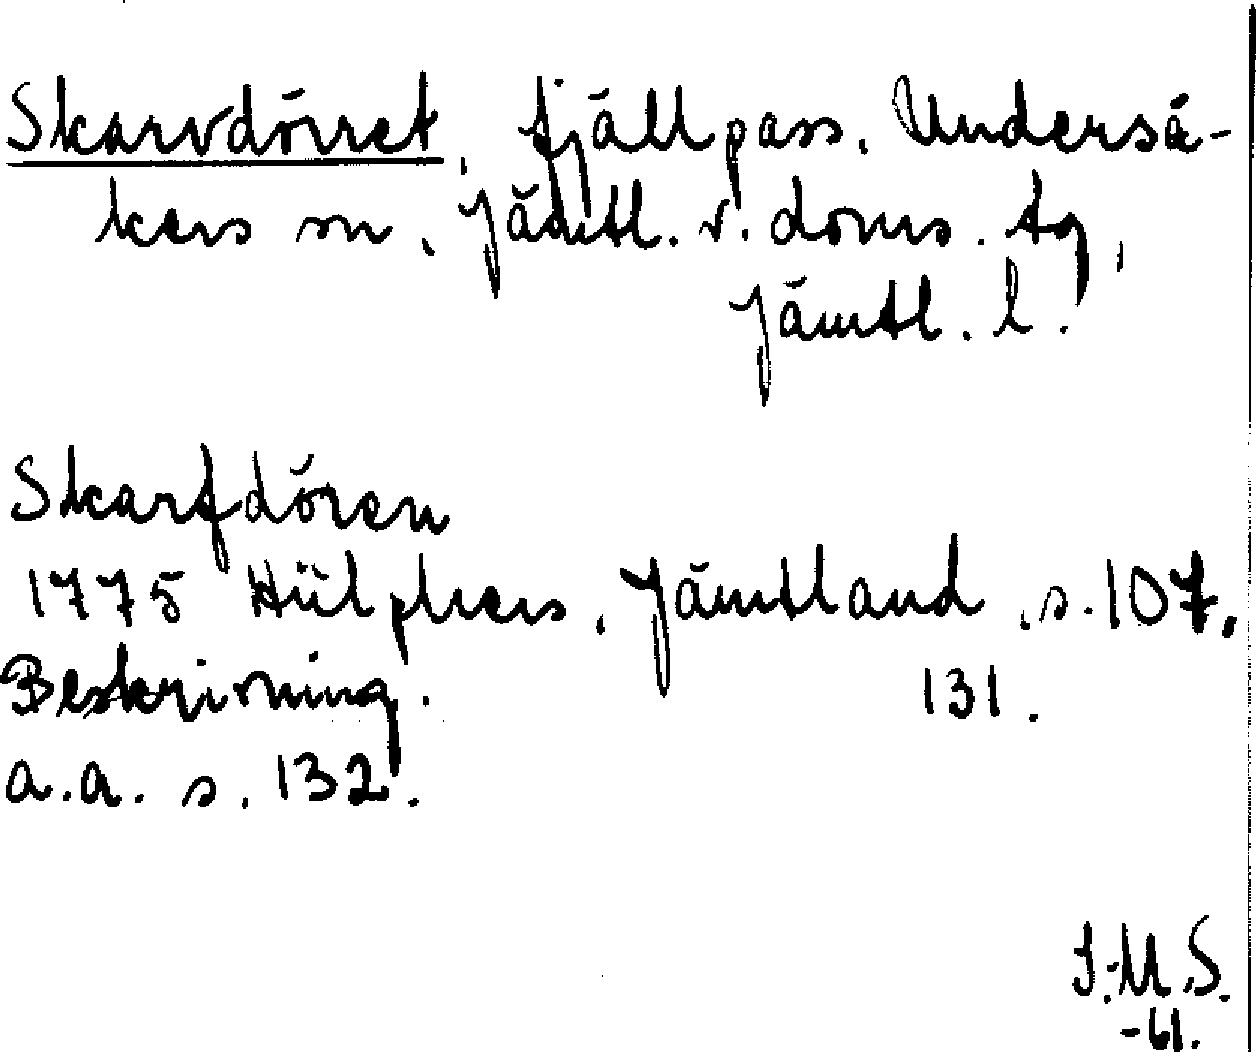 Skarvdörret, fjällpass. Underså-
kers sn, Jämtl. v. doms. tg,
Jämtl. l.
Skarfdören
1775 Hülphers, Jämtland, s. 107,
131.
Beskrivning.
a.a. s. 132.
J.M.S.
-61.